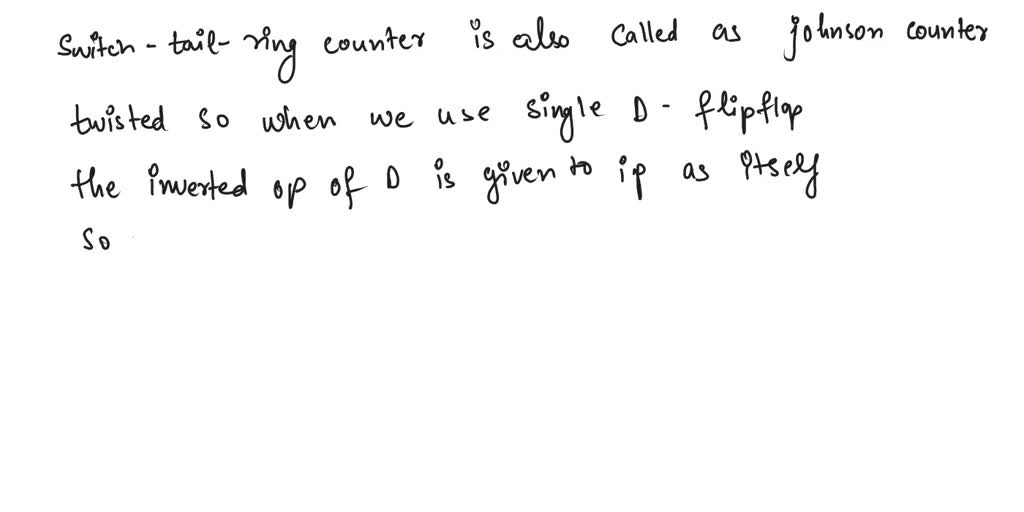 Switch-tail-ring counter is also called as johnson counter
twisted so when we use single D-flipflop
the inverted op of D is given to ip as itself
so